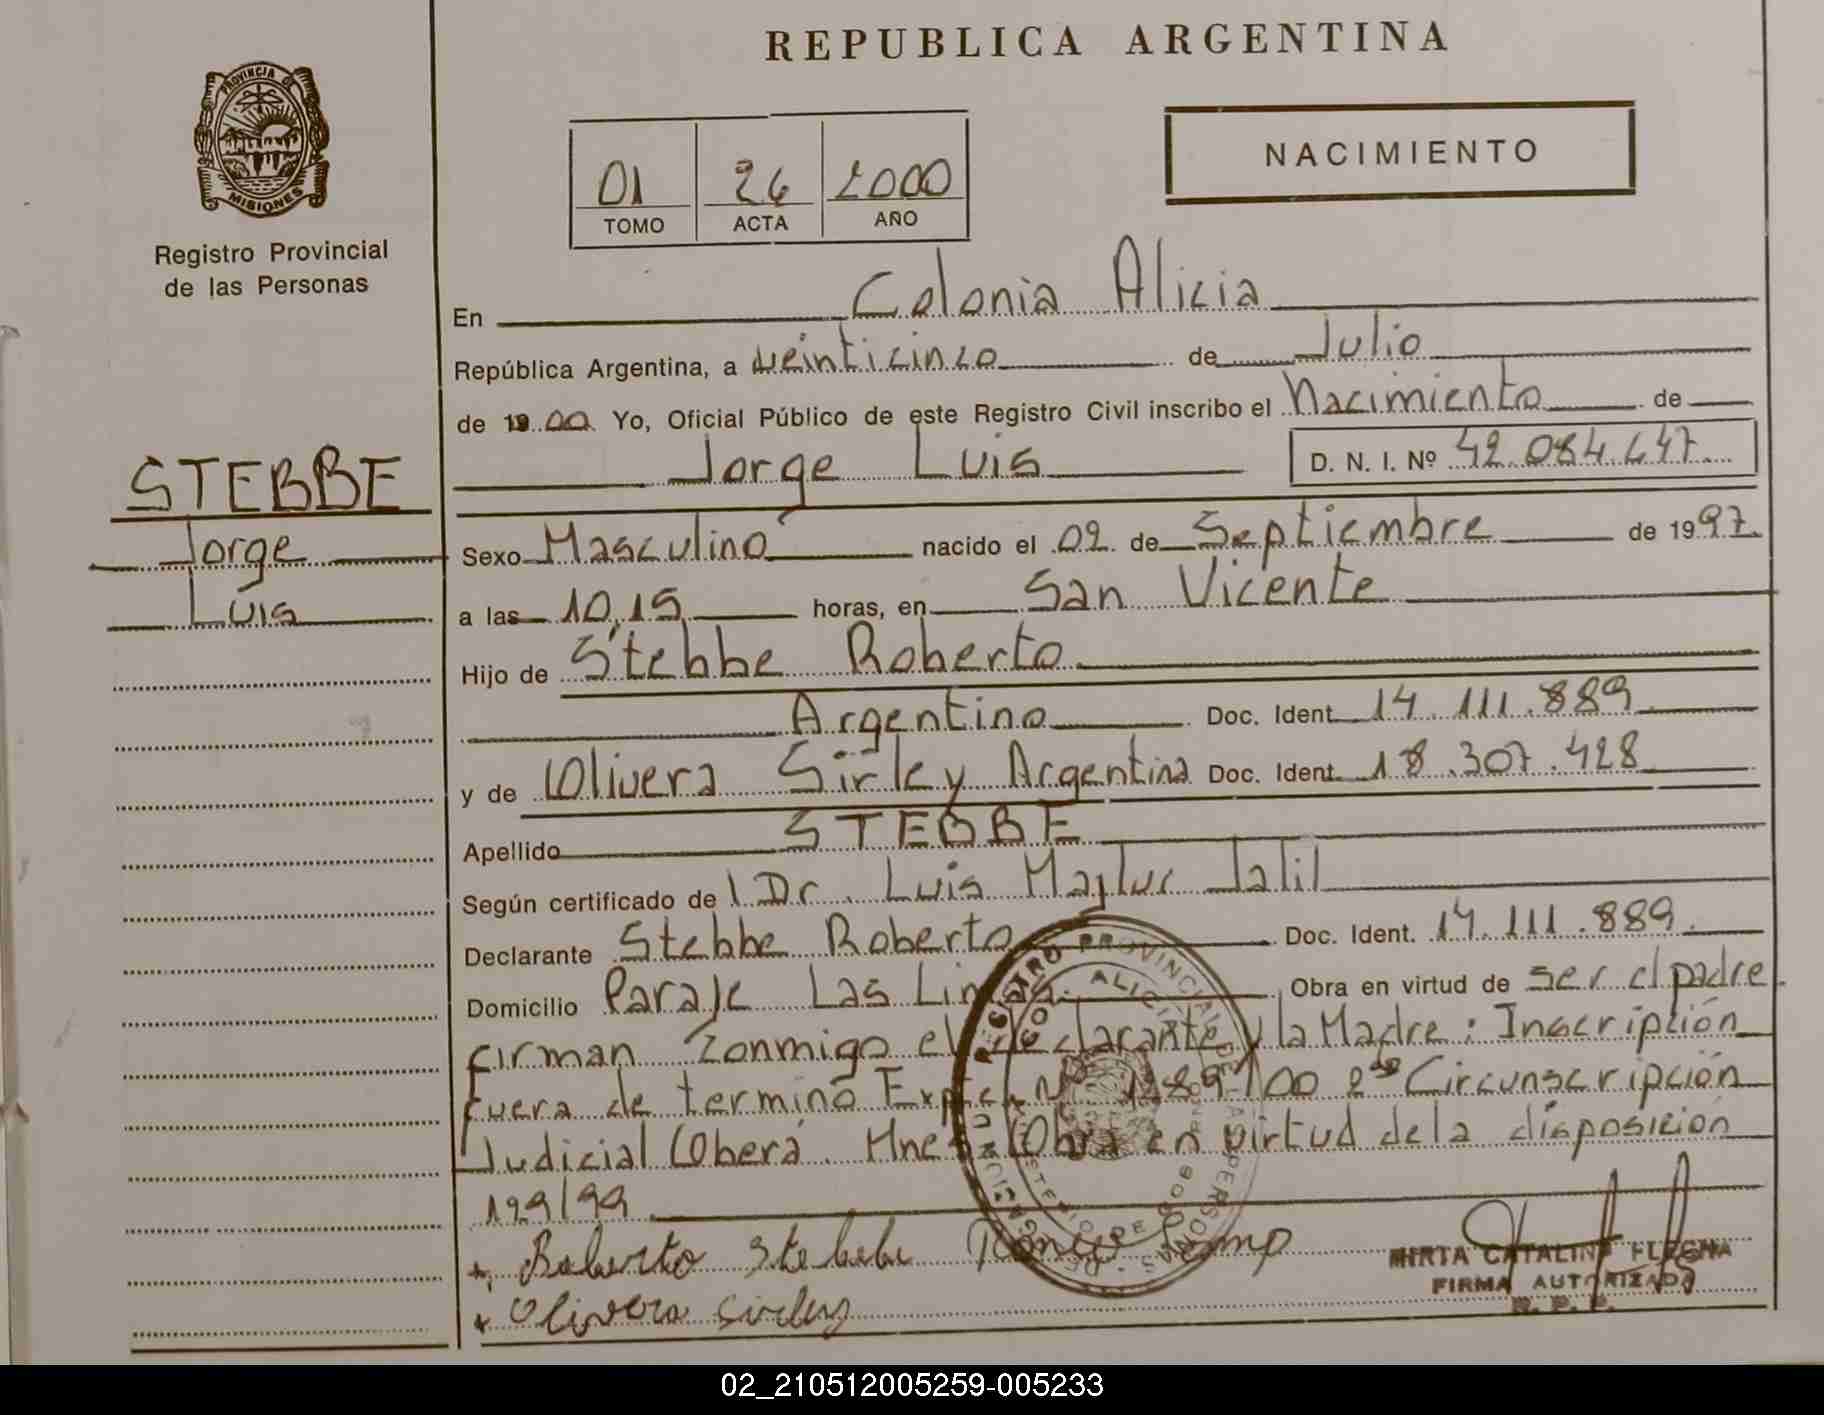 REPUBLICA ARGENTINA
PROVINCIA
MISIONES
Registro Provincial
de las Personas
01 26 2000
TOMO ACTA AÑO
NACIMIENTO
En Colonia Alicia
República Argentina, a veinticinco de Julio
de 19 00 Yo, Oficial Público de este Registro Civil inscribo el Nacimiento de
Jorge Luis D. N. I. Nº 42.084.447
STEBBE
Jorge
Luis
Sexo Masculino nacido el 02 de Septiembre de 1997
a las 10,15 horas, en San Vicente
Hijo de Stebbe Roberto
Argentino Doc. Ident. 14.111.889
y de Olivera Sirley Argentina Doc. Ident. 18.307.428
Apellido STEBBE
Según certificado de Dr. Luis
Declarante Stebbe Roberto Doc. Ident. 14.111.889
Domicilio Paraje Las Obra en virtud de ser el padre
firman Conmigo el declarante y la Madre: Inscripción
fuera de termino Expte. Nº 2da Circunscripción
Judicial Oberá. Mnes. Obra en virtud de la disposición
199/99
Roberto Stebbe
Olivera Sirley
MIRTA CATALINA FLECHA
FIRMA AUTORIZADA
R. P. P.
REGISTRO PROVINCIAL DE LAS PERSONAS
COL. ALICIA
02_210512005259-005233